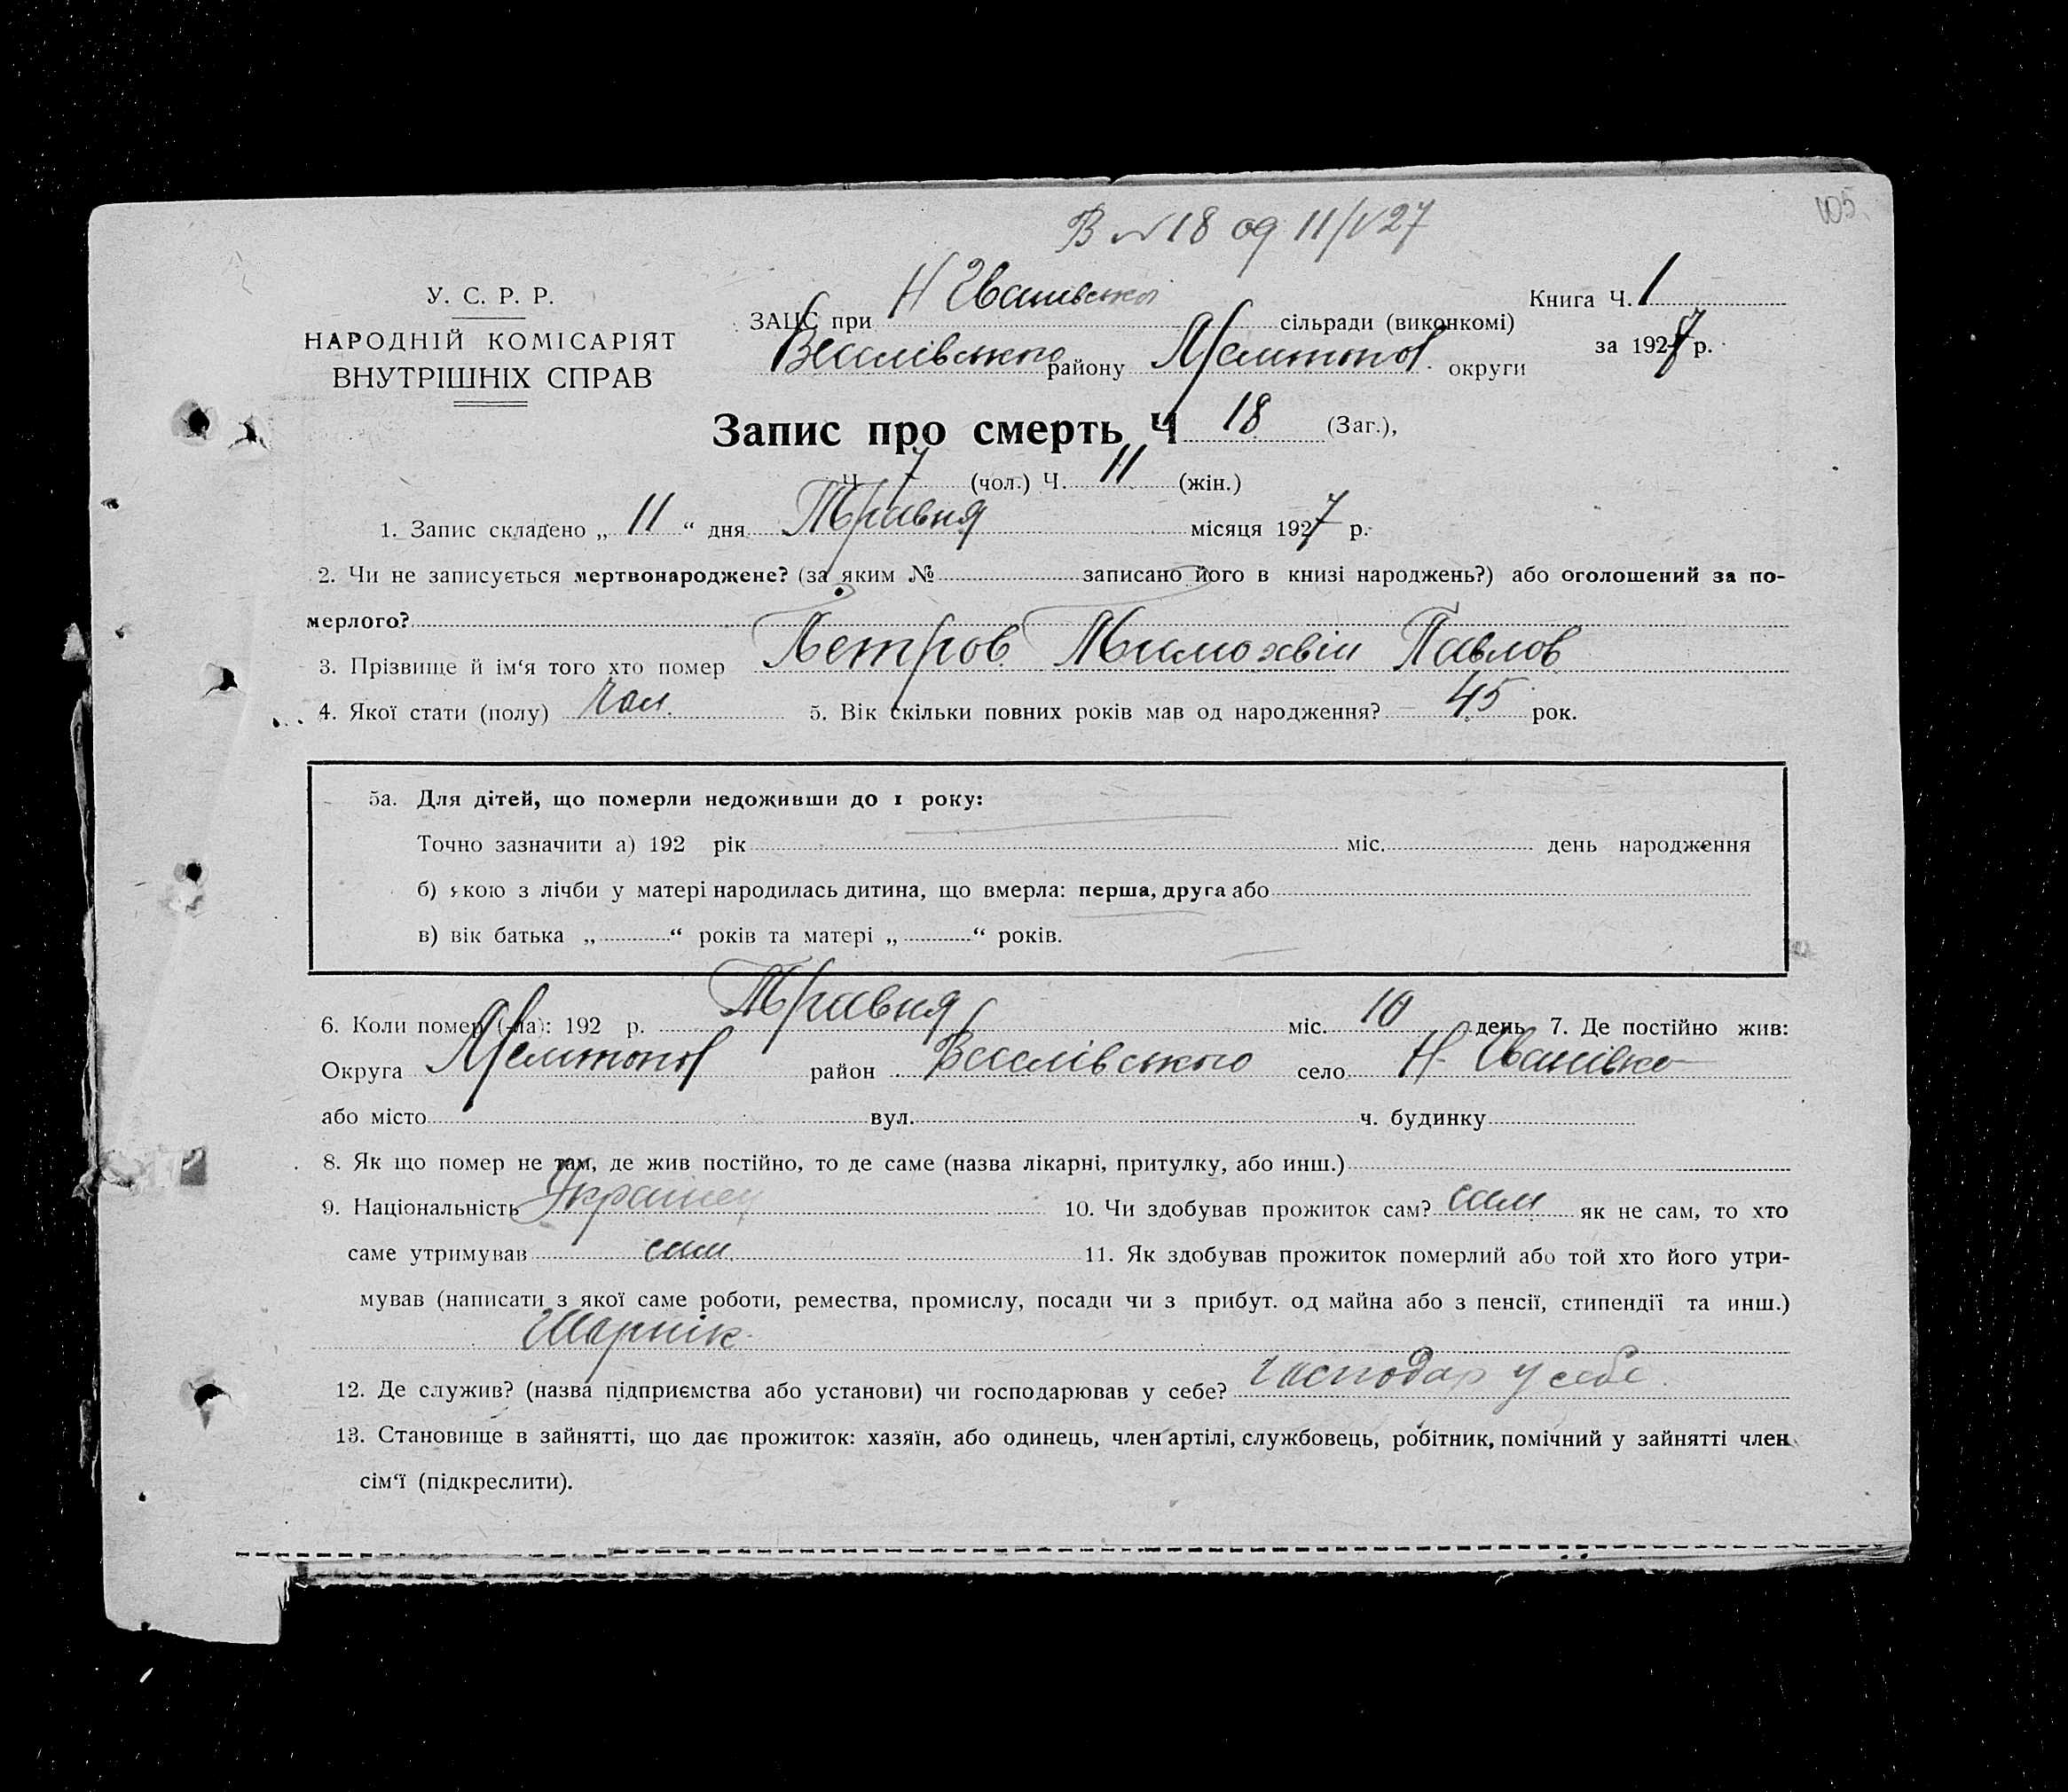 105.
В №18 од 11/V 27
У. С. Р. Р.
НАРОДНІЙ КОМІСАРІЯТ
ВНУТРІШНІХ СПРАВ
ЗАЦС при Н Іванівської сільради (виконкомі)
Веселівського району Мелитопол. округи
Книга Ч. 1
за 1927 р.
Запис про смерть Ч 18 (Заг.),
Ч 7 (чол.) Ч. 11 (жін.)
1. Запис складено „ 11 “ дня Травня місяця 1927 р.
2. Чи не записується мертвонароджене? (за яким № записано його в книзі народжень?) або оголошений за по-
мерлого?
3. Прізвище й ім‘я того хто помер Петров Тимохвій Павлов
4. Якої стати (полу) чол. 5. Вік скільки повних років мав од народження? 45 рок.
5а. Для дітей, що померли недоживши до 1 року:
Точно зазначити а) 192 рік міс. день народження
б) якою з лічби у матері народилась дитина, що вмерла: перша, друга або
в) вік батька „ “ років та матері „ “ років.
6. Коли помер (-ла): 192 р. Травня міс. 10 день 7. Де постійно жив:
Округа Мелитопол район Веселівського село Н. Іванівка
або місто вул. ч. будинку
8. Як що помер не там, де жив постійно, то де саме (назва лікарні, притулку, або инш.)
9. Національність Українец 10. Чи здобував прожиток сам? сам як не сам, то хто
саме утримував сам 11. Як здобував прожиток померлий або той хто його утри-
мував (написати з якої саме роботи, ремества, промислу, посади чи з прибут. од майна або з пенсії, стипендії та инш.)
12. Де служив? (назва підприємства або установи) чи господарював у себе? господар у себе.
13. Становище в зайнятті, що дає прожиток: хазяїн, або одинець, член артілі, службовець, робітник, помічний у зайнятті член
сім‘ї (підкреслити).